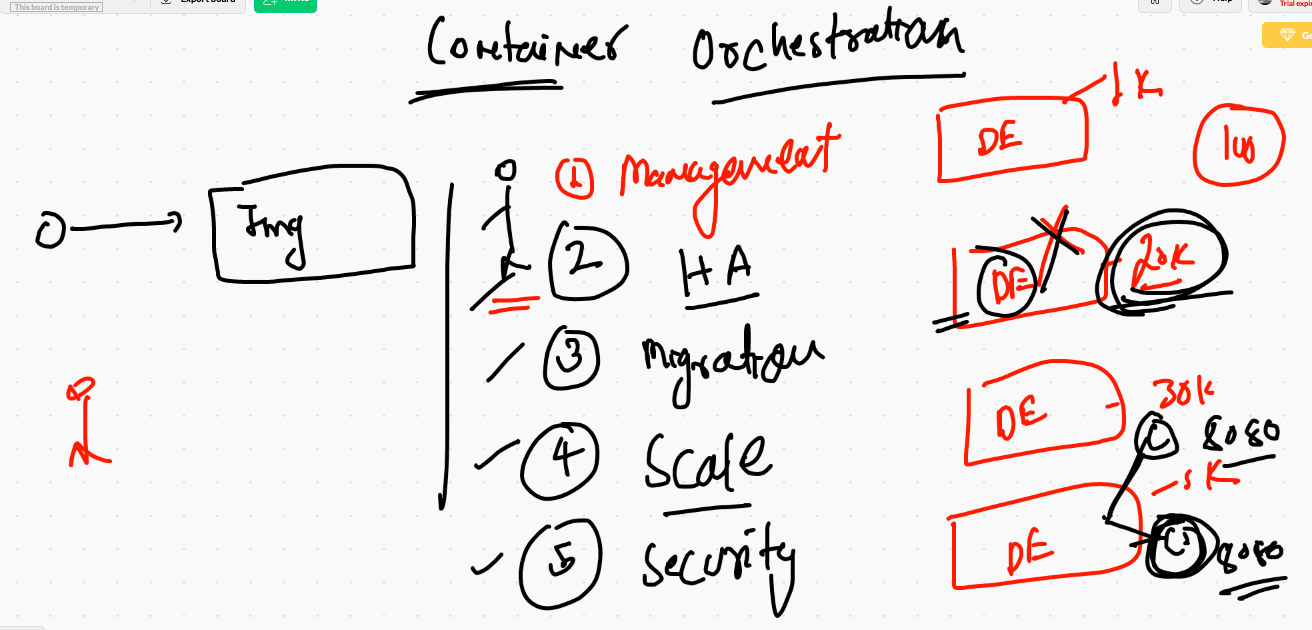 This board is temporary
Export board
Help
Trial expi
Go
Container Orchestration
Img
1 Management
2 HA
3 Migration
4 Scale
5 Security
DE 1K
100
DE 20K
DE 30K
C 8080
DE
K
C 8080